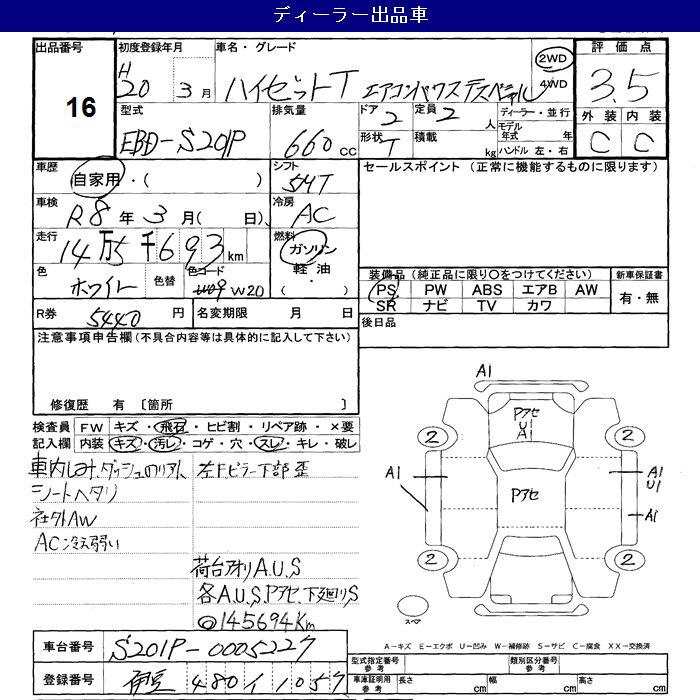 ディーラー出品車
出品番号 初度登録年月 車名・グレード 評価点
16 H20 3月 ハイゼットT エアコンパワステスペシャル 2WD 4WD 3.5
型式 排気量 ドア 定員 ディーラー・並行 外装 内装
EBD-S201P 660cc 2 2人 モデル年式 年 C C
形状 T 積載 kg ハンドル 左・右
車歴 自家用・( ) シフト 5MT セールスポイント (正常に機能するものに限ります)
車検 R8年3月( 日) 冷房 AC
走行 14万5千693km 燃料 ガソリン
軽油・( )
色 ホワイト 色替 色コード W20
装備品(純正品に限り〇をつけてください) 新車保証書
PS PW ABS エアB AW 有・無
SR ナビ TV カワ
R券 5440円 名変期限 月 日 後日品
注意事項申告欄(不具合内容等は具体的に記入して下さい)
修復歴 有 〔箇所 〕
検査員 FW キズ・飛石・ヒビ割・リペア跡・×要
記入欄 内装 キズ・汚レ・コゲ・穴・スレ・キレ・破レ
左Fピラー下部歪
シートヘタリ
社外AW
AC冷え弱い
荷台アオリA.U.S
各A.U.S.Pアセ、下廻りS
◎145694Km
A1
Pアセ
U1
A1
2 2
A1 Pアセ A1
U1
A1
2 2
スペア
A-キズ E-エクボ U-凹み W-補修跡 S-サビ C-腐食 XX-交換済
車台番号 S201P-0005227
型式指定番号 参考 類別区分番号 参考
登録番号 伊豆 480 イ 1057
車庫証明用 参考 長さ cm 幅 cm 高さ cm